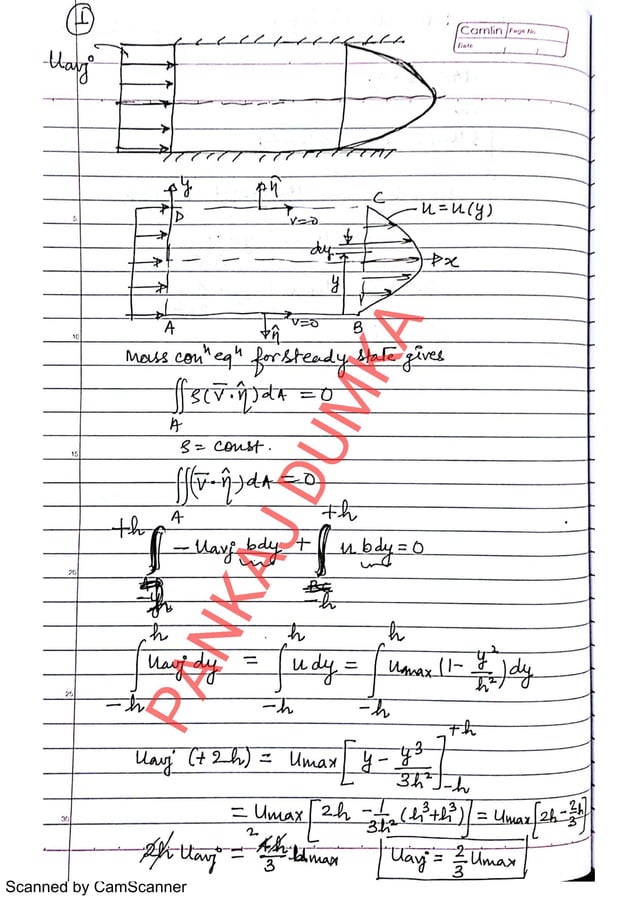 I
Camlin Page No.
Date
Uavg
y n̂ C u = u(y)
D v=0
dy x
y
A n̂ v=0 B
10
Mass conⁿ eqⁿ for steady state gives
∬_A ρ(V̄·n̂)dA = 0
ρ = const.
15
∬_A (V̄·n̂)dA = 0
∫_{-h}^{+h} - Uavg bdy + ∫_{-h}^{+h} u bdy = 0
20
∫_{-h}^{h} Uavg dy = ∫_{-h}^{h} u dy = ∫_{-h}^{h} Umax (1 - y²/h²) dy
25
Uavg (+2h) = Umax [y - y³/3h²]_{-h}^{+h}
= Umax [2h - 1/3h² (h³+h³)] = Umax [2h - 2h/3]
30
2h Uavg = 4h/3 Umax Uavg = 2/3 Umax
PANKAJ DUMKA
Scanned by CamScanner